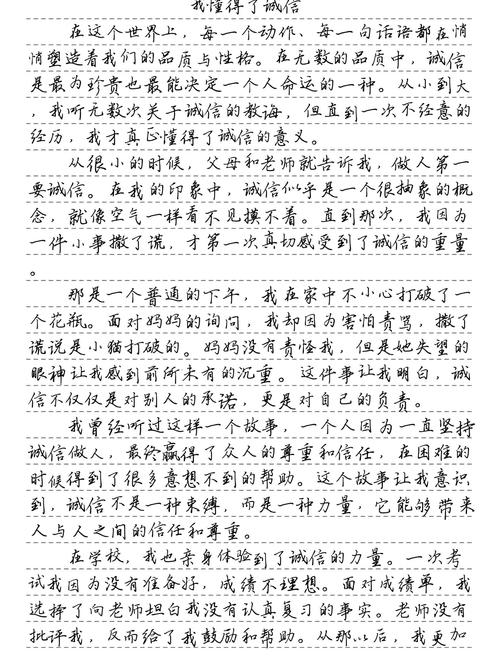 我懂得了诚信
在这个世界上，每一个动作、每一句话语都在悄
悄塑造着我们的品质与性格。在无数的品质中，诚信
是最为珍贵也最能决定一个人命运的一种。从小到大
，我听无数次关于诚信的教诲，但直到一次不经意的
经历，我才真正懂得了诚信的意义。
从很小的时候，父母和老师就告诉我，做人第一
要诚信。在我的印象中，诚信似乎是一个很抽象的概
念，就像空气一样看不见摸不着。直到那次，我因为
一件小事撒了谎，才第一次真切感受到了诚信的重量
。
那是一个普通的下午，我在家中不小心打破了一
个花瓶。面对妈妈的询问，我却因为害怕责骂，撒了
谎说是小猫打破的。妈妈没有责怪我，但是她失望的
眼神让我感到前所未有的沉重。这件事让我明白，诚
信不仅仅是对别人的承诺，更是对自己的负责。
我曾经听过这样一个故事，一个人因为一直坚持
诚信做人，最终赢得了众人的尊重和信任，在困难的
时候得到了很多意想不到的帮助。这个故事让我意识
到，诚信不是一种束缚，而是一种力量，它能够带来
人与人之间的信任和尊重。
在学校，我也亲身体验到了诚信的力量。一次考
试我因为没有准备好，成绩不理想。面对成绩单，我
选择了向老师坦白我没有认真复习的事实。老师没有
批评我，反而给了我鼓励和帮助。从那以后，我更加